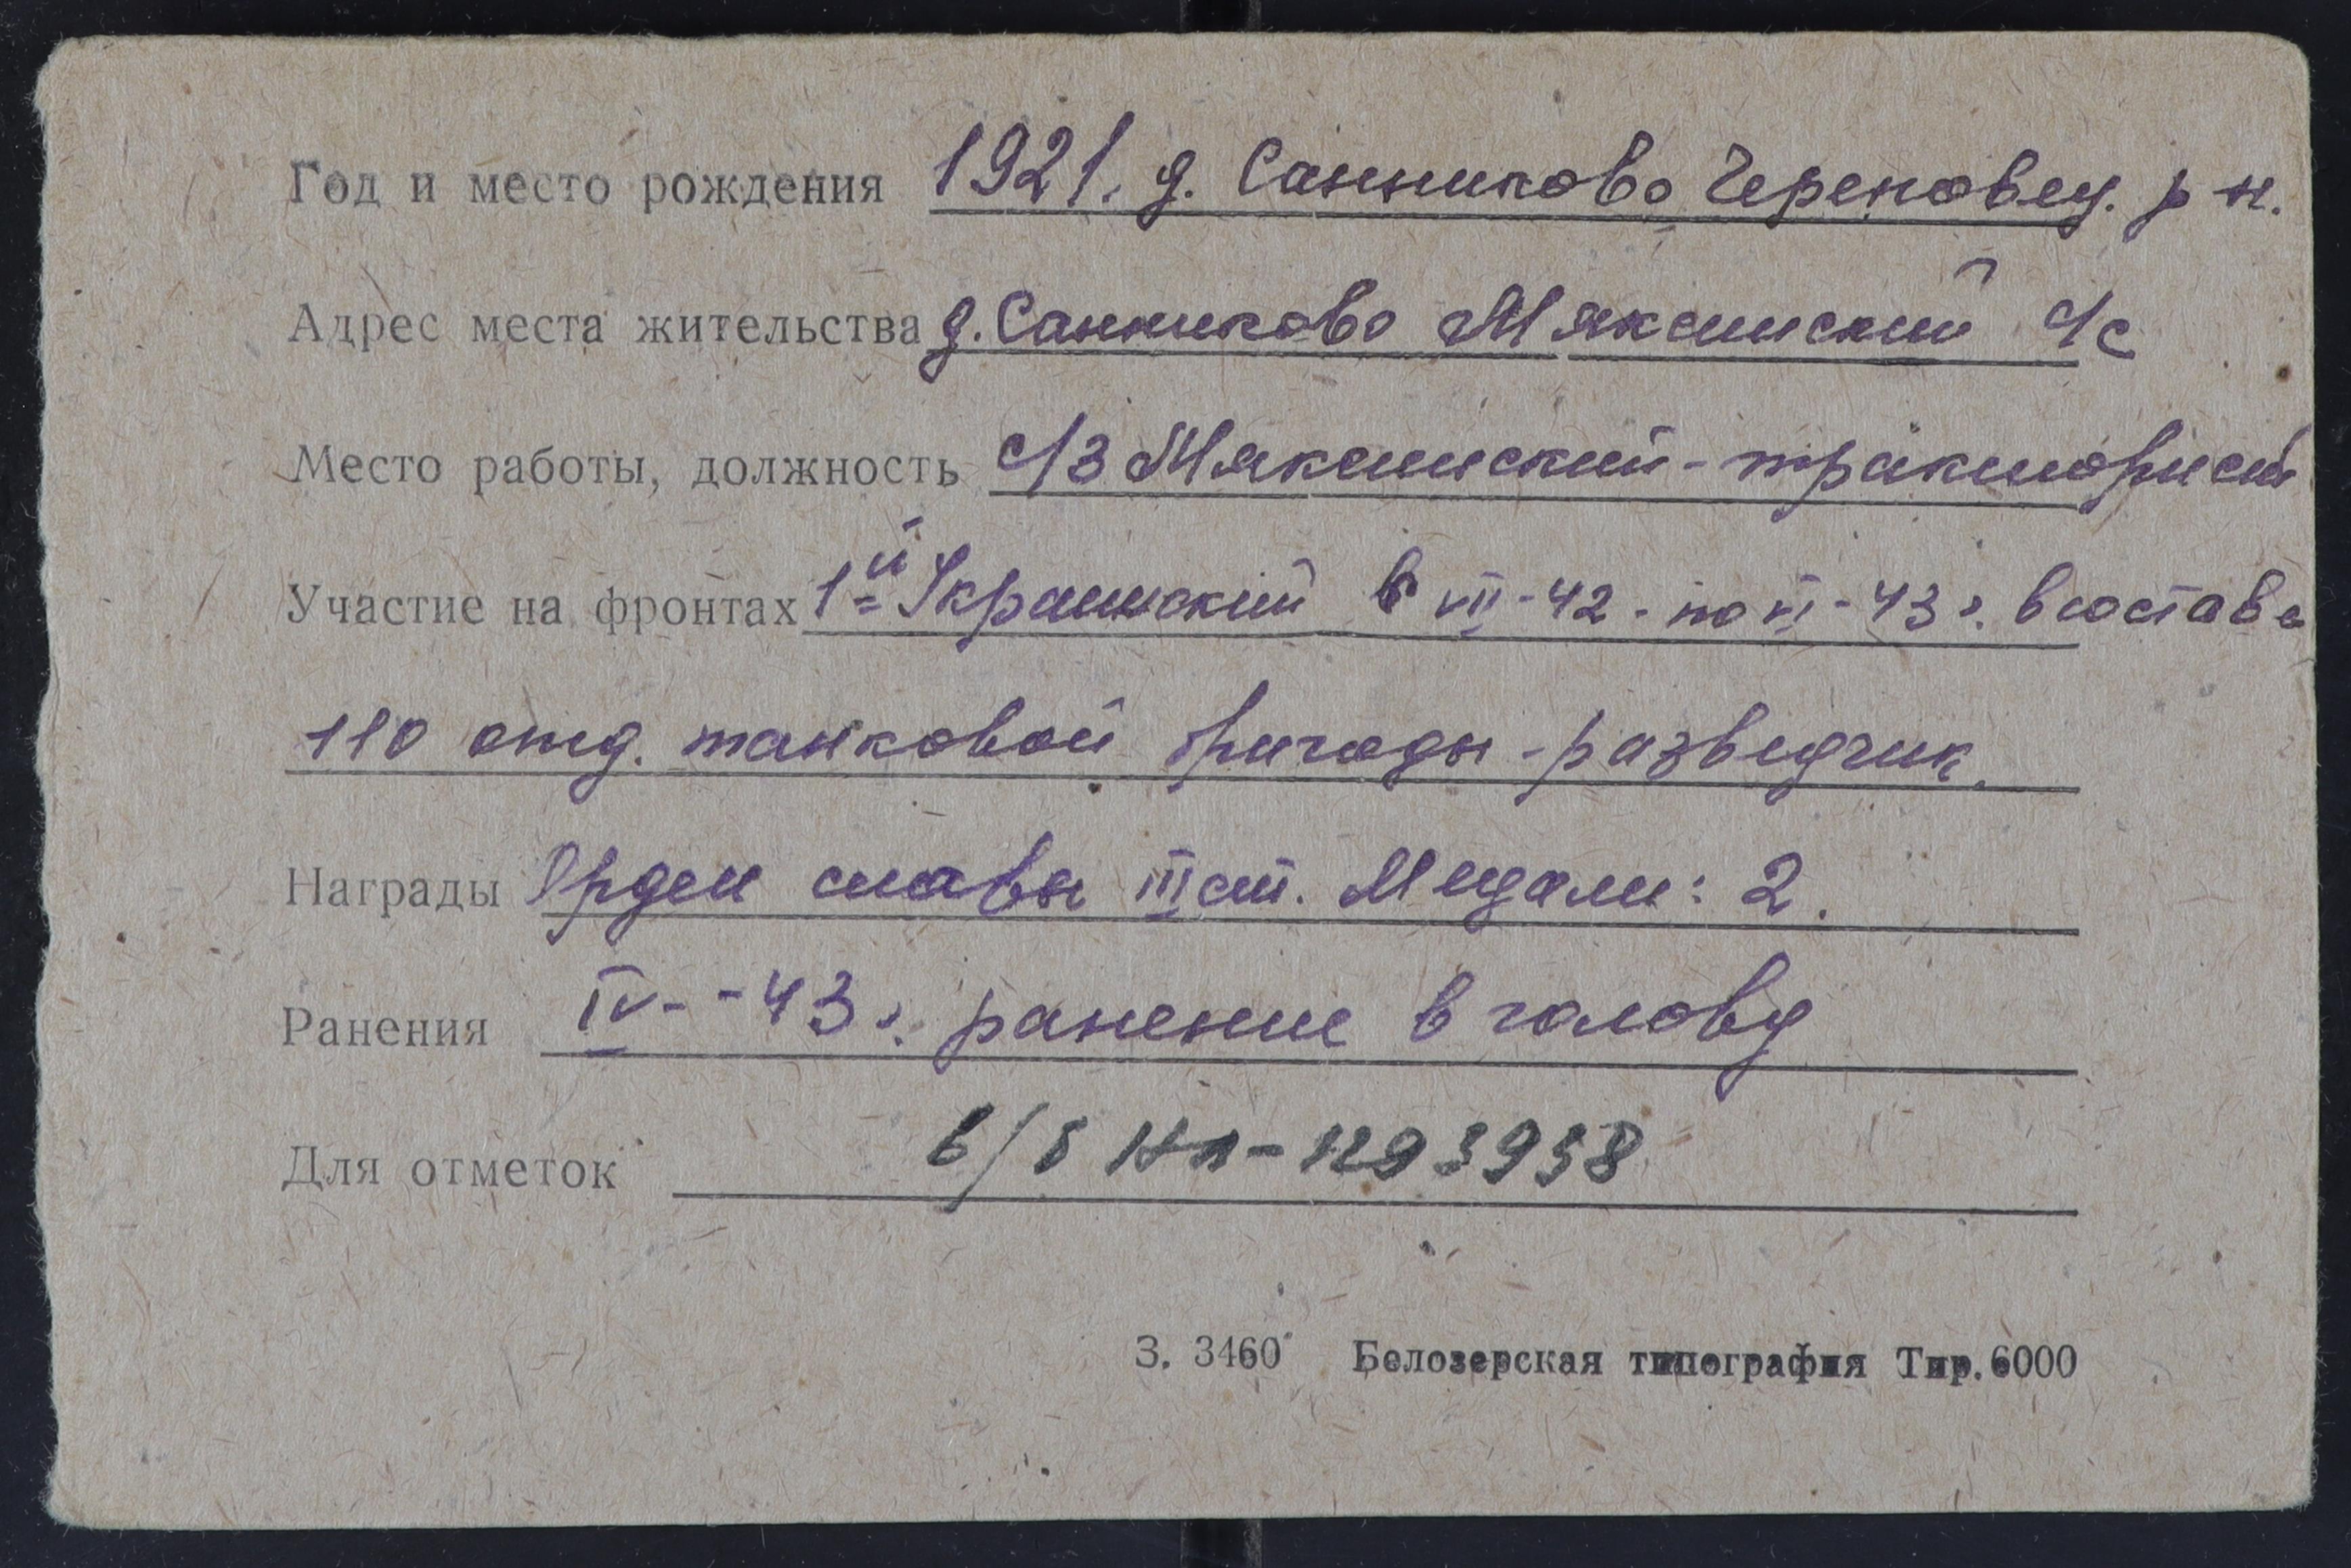 Год и место рождения 1921. д. Санниково Череповец. р н.
Адрес места жительства д. Санниково Мяксинский с/с
Место работы, должность с/з Мяксинский - тракторист
Участие на фронтах 1й Украинский в VII-42 - по VI-43 г. в составе
110 отд. танковой бригады - разведчик.
Награды Орден славы III ст. Медали: 2.
Ранения IV - -43 г. ранение в голову
Для отметок в/б
З. 3460 Белозерская типография Тир. 6000